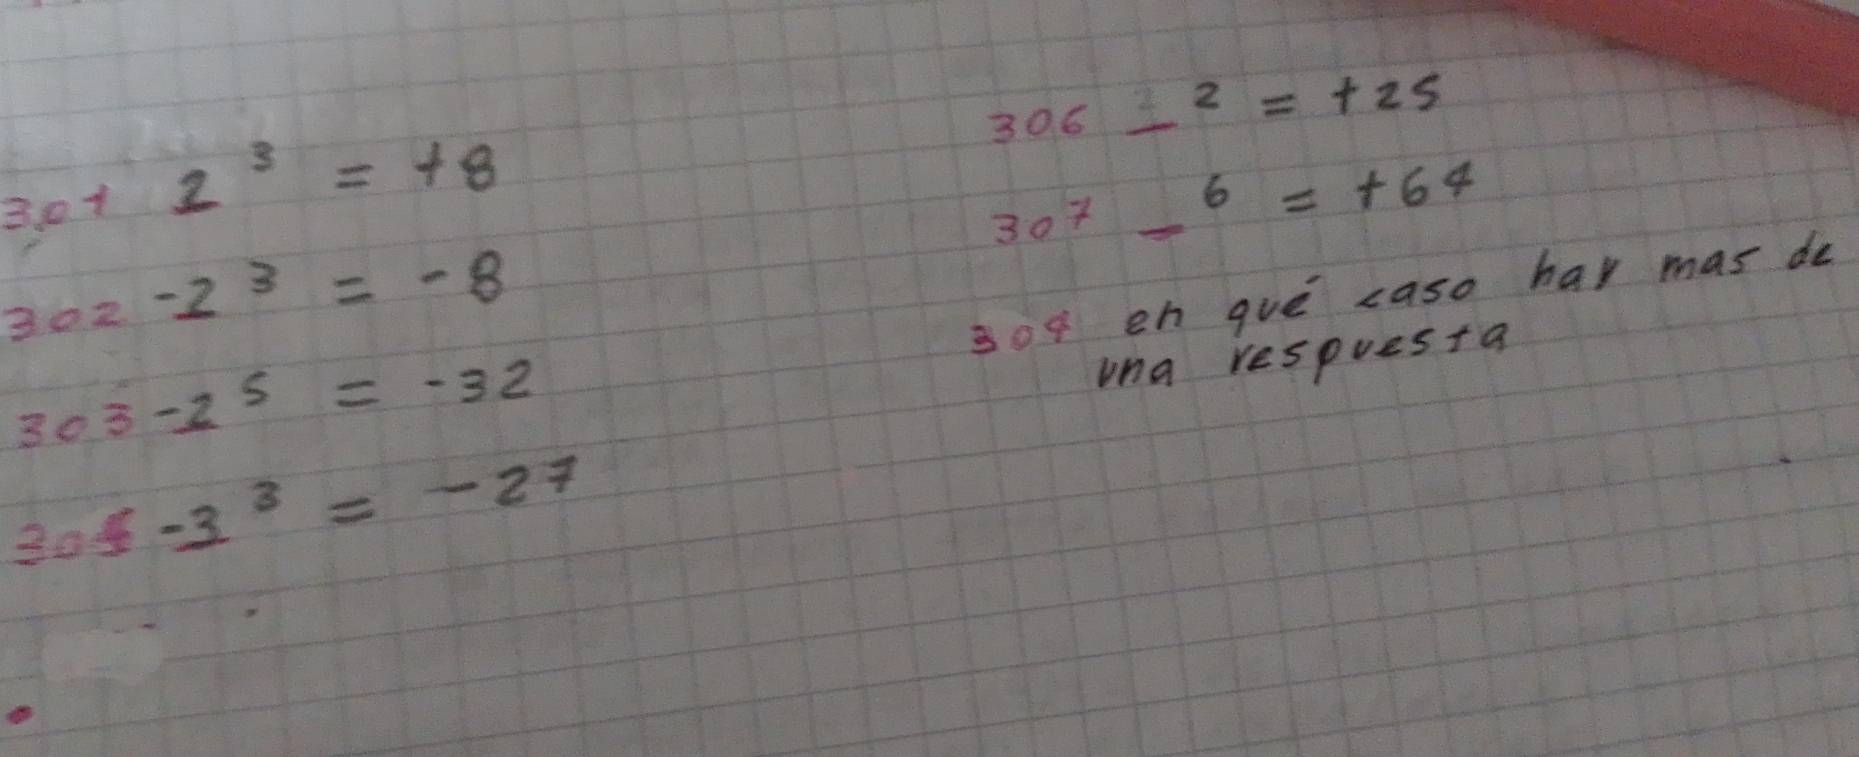 301 2³ = +8
302 -2³ = -8
303 -2⁵ = -32
305 -3³ = -27
306 _² = +25
307 _⁶ = +64
304 en qué caso hay mas de
una respuesta